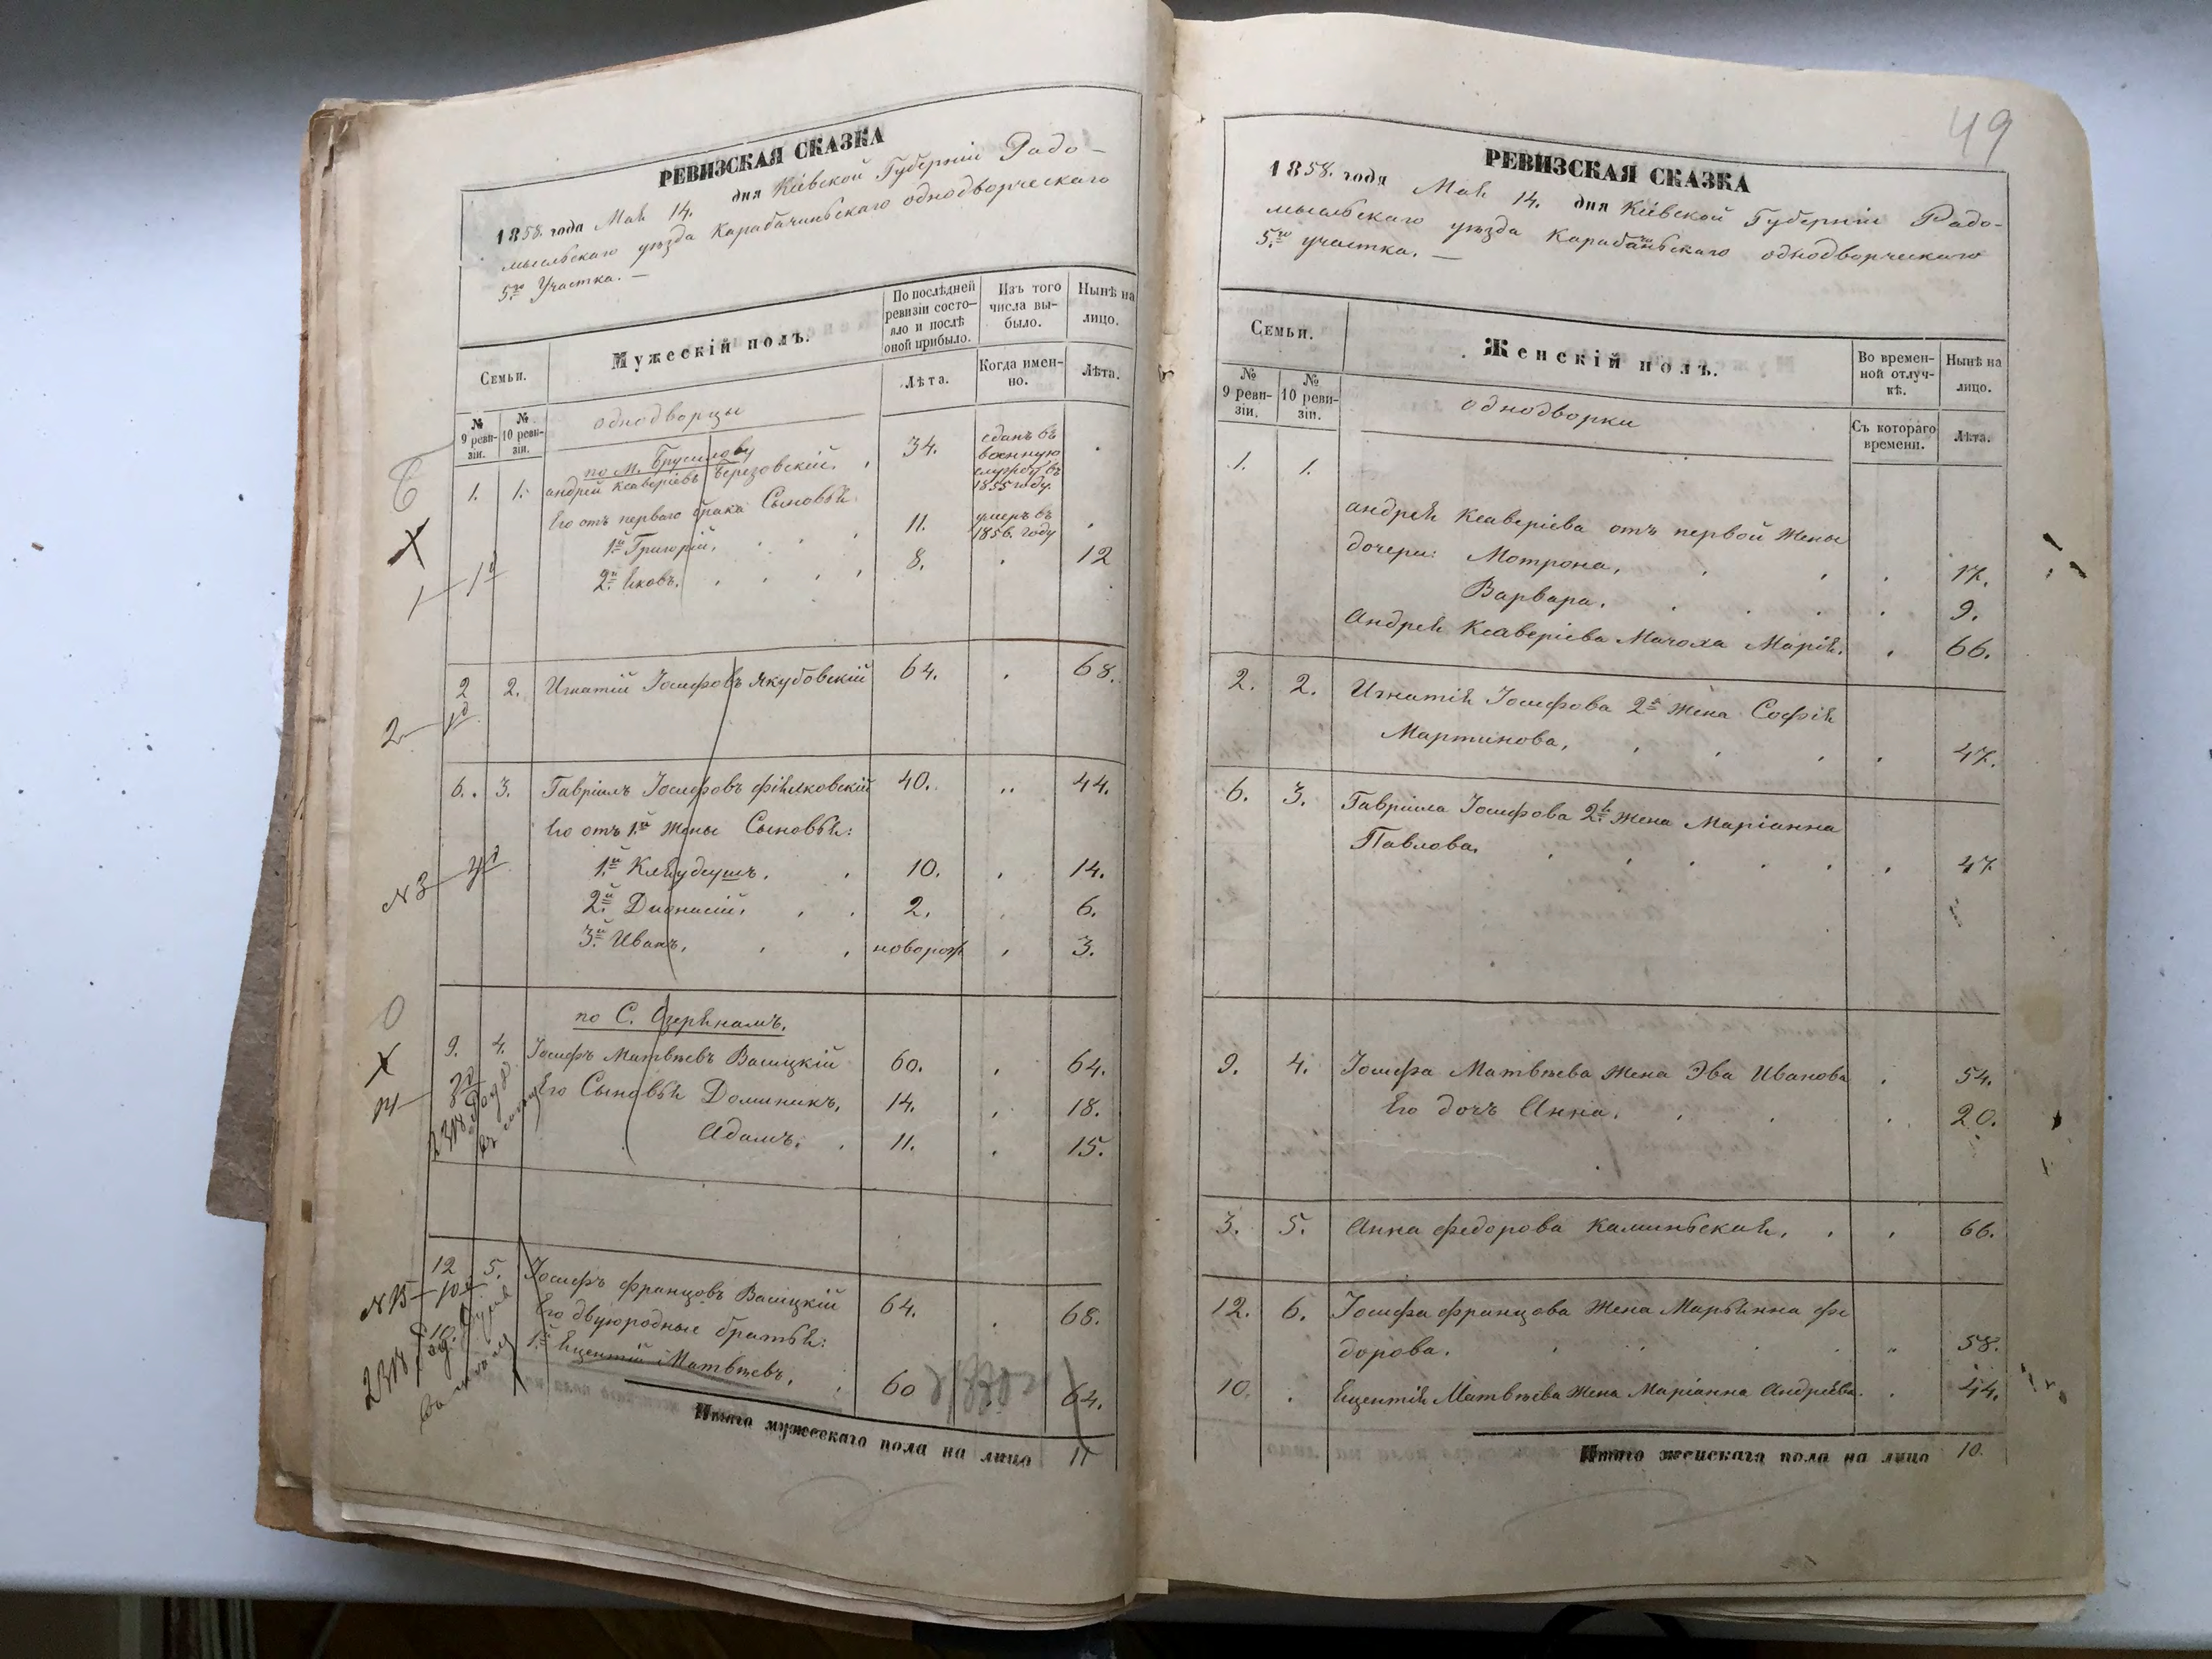 РЕВИЗСКАЯ СКАЗКА
1858. года Маѣ 14. дня Кіевской Губерніи Радо-
мысльскаго уѣзда Карабачинскаго однодворческаго
5го Участка. —
Семьи.
Мужескій полъ.
По послѣдней ревизіи состо-
яло и послѣ
оной прибыло.
Изъ того
числа вы-
было.
Нынѣ на
лицо.
№
9 реви-
зіи.
№
10 реви-
зіи.
Лѣта.
Когда имен-
но.
Лѣта.
однодворцы
по М. Брусилову
1. 1. Андрей Ксаверіевъ Березовскій. 34. сданъ въ
военную
службу въ
1855 году.
Его отъ перваго брака Сыновья:
1й Григорій. 11. умеръ въ
1856. году
2й Яковъ. 8. 12
1 1д
2 2. Игнатій Іосифовъ Якубовскій 64. 68.
2 1д
6. 3. Гавріилъ Іосифовъ Фіялковскій 40. 44.
Его отъ 1й жены Сыновья:
1й Клявдеушъ. 10. 14.
№3
2й Дионисій. 2. 6.
3й Иванъ. новорож 3.
по С. Озерянамъ.
9. 4. Іосифъ Матвѣевъ Васицкій 60. 64.
Его Сыновья Доминикъ, 14. 18.
Адамъ. 11. 15.
12 5. Іосифъ Францовъ Васицкій 64. 68.
Его двуюродные братья:
1й Яцентій Матвѣевъ. 60 64.
Итого мужескаго пола на лицо 11
49
РЕВИЗСКАЯ СКАЗКА
1858. года Маѣ 14. дня Кіевской Губерніи Радо-
мысльскаго уѣзда Карабачинскаго однодворческаго
5го участка. —
Семьи.
Женскій полъ.
Во времен-
ной отлуч-
кѣ.
Нынѣ на
лицо.
№
9 реви-
зіи.
№
10 реви-
зіи.
Съ котораго
времени.
Лѣта.
однодворки
1. 1.
Андрея Ксаверіева отъ первой жены
дочери: Мотрона, 17.
Варвара. 9.
Андрея Ксаверіева Мачоха Марія. 66.
2. 2. Игнатія Іосифова 2я жена Софія
Мартинова, 47.
6. 3. Гавріила Іосифова 2я жена Маріанна
Павлова. 47
9. 4. Іосифа Матвѣева жена Эва Иванова 54.
Его дочь Анна. 20.
3. 5. Анна Федорова Каминьская. 66.
12. 6. Іосифа Францова жена Марьянна Фе
дорова. 58.
10. Яцентія Матвѣева жена Маріанна Андрѣева. 44.
Итого женскаго пола на лицо 10.